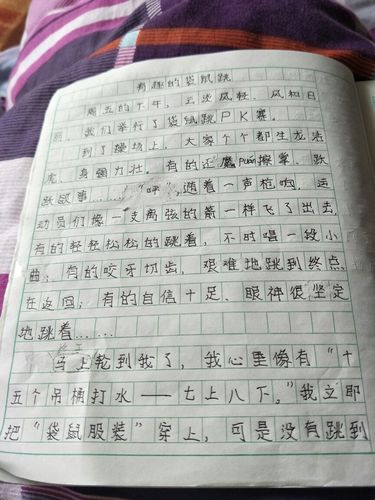 有趣的袋鼠跳
周五的下午，云淡风轻、风和日
丽，我们举行了袋鼠跳PK赛。
到了操场上，大家个个都生龙活
虎、身强力壮。有的还魔拳擦掌、跃
跃欲事……"呼"，随着一声枪响，运
动员们像一支离弦的箭一样飞了出去，
有的轻轻松松的跳着，不时唱一段小
曲；有的咬牙切齿，艰难地跳到终点
在返回；有的自信十足、眼神很坚定
地跳着……
马上轮到我了，我心里像有"十
五个吊桶打水——七上八下。"我立即
把"袋鼠服装"穿上，可是没有跳到